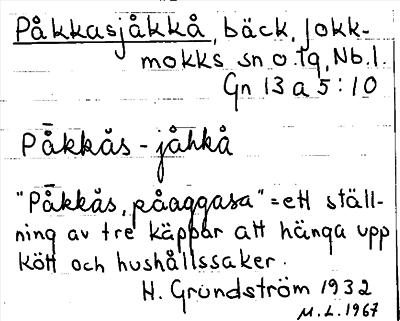 Påkkasjåkkå, bäck, Jokk-
mokks sn o. tg, Nb. l.
Gn 13 a 5:10
På̄kkås - jåhkå
"På̄kkås, påaggasa" = ett ställ-
ning av tre käppar att hänga upp
kött och hushållssaker.
H. Grundström 1932
M. L. 1967